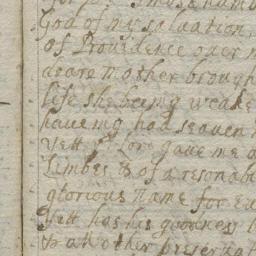 God of my saluation,
of Prouidence ouer m
deare Mother brough
life she being weake
haueing had seauen
yett ye Lord gaue me
Limbes & of a resonabl
glorious Name for Eu
yett has his goodness
& all other preseruat